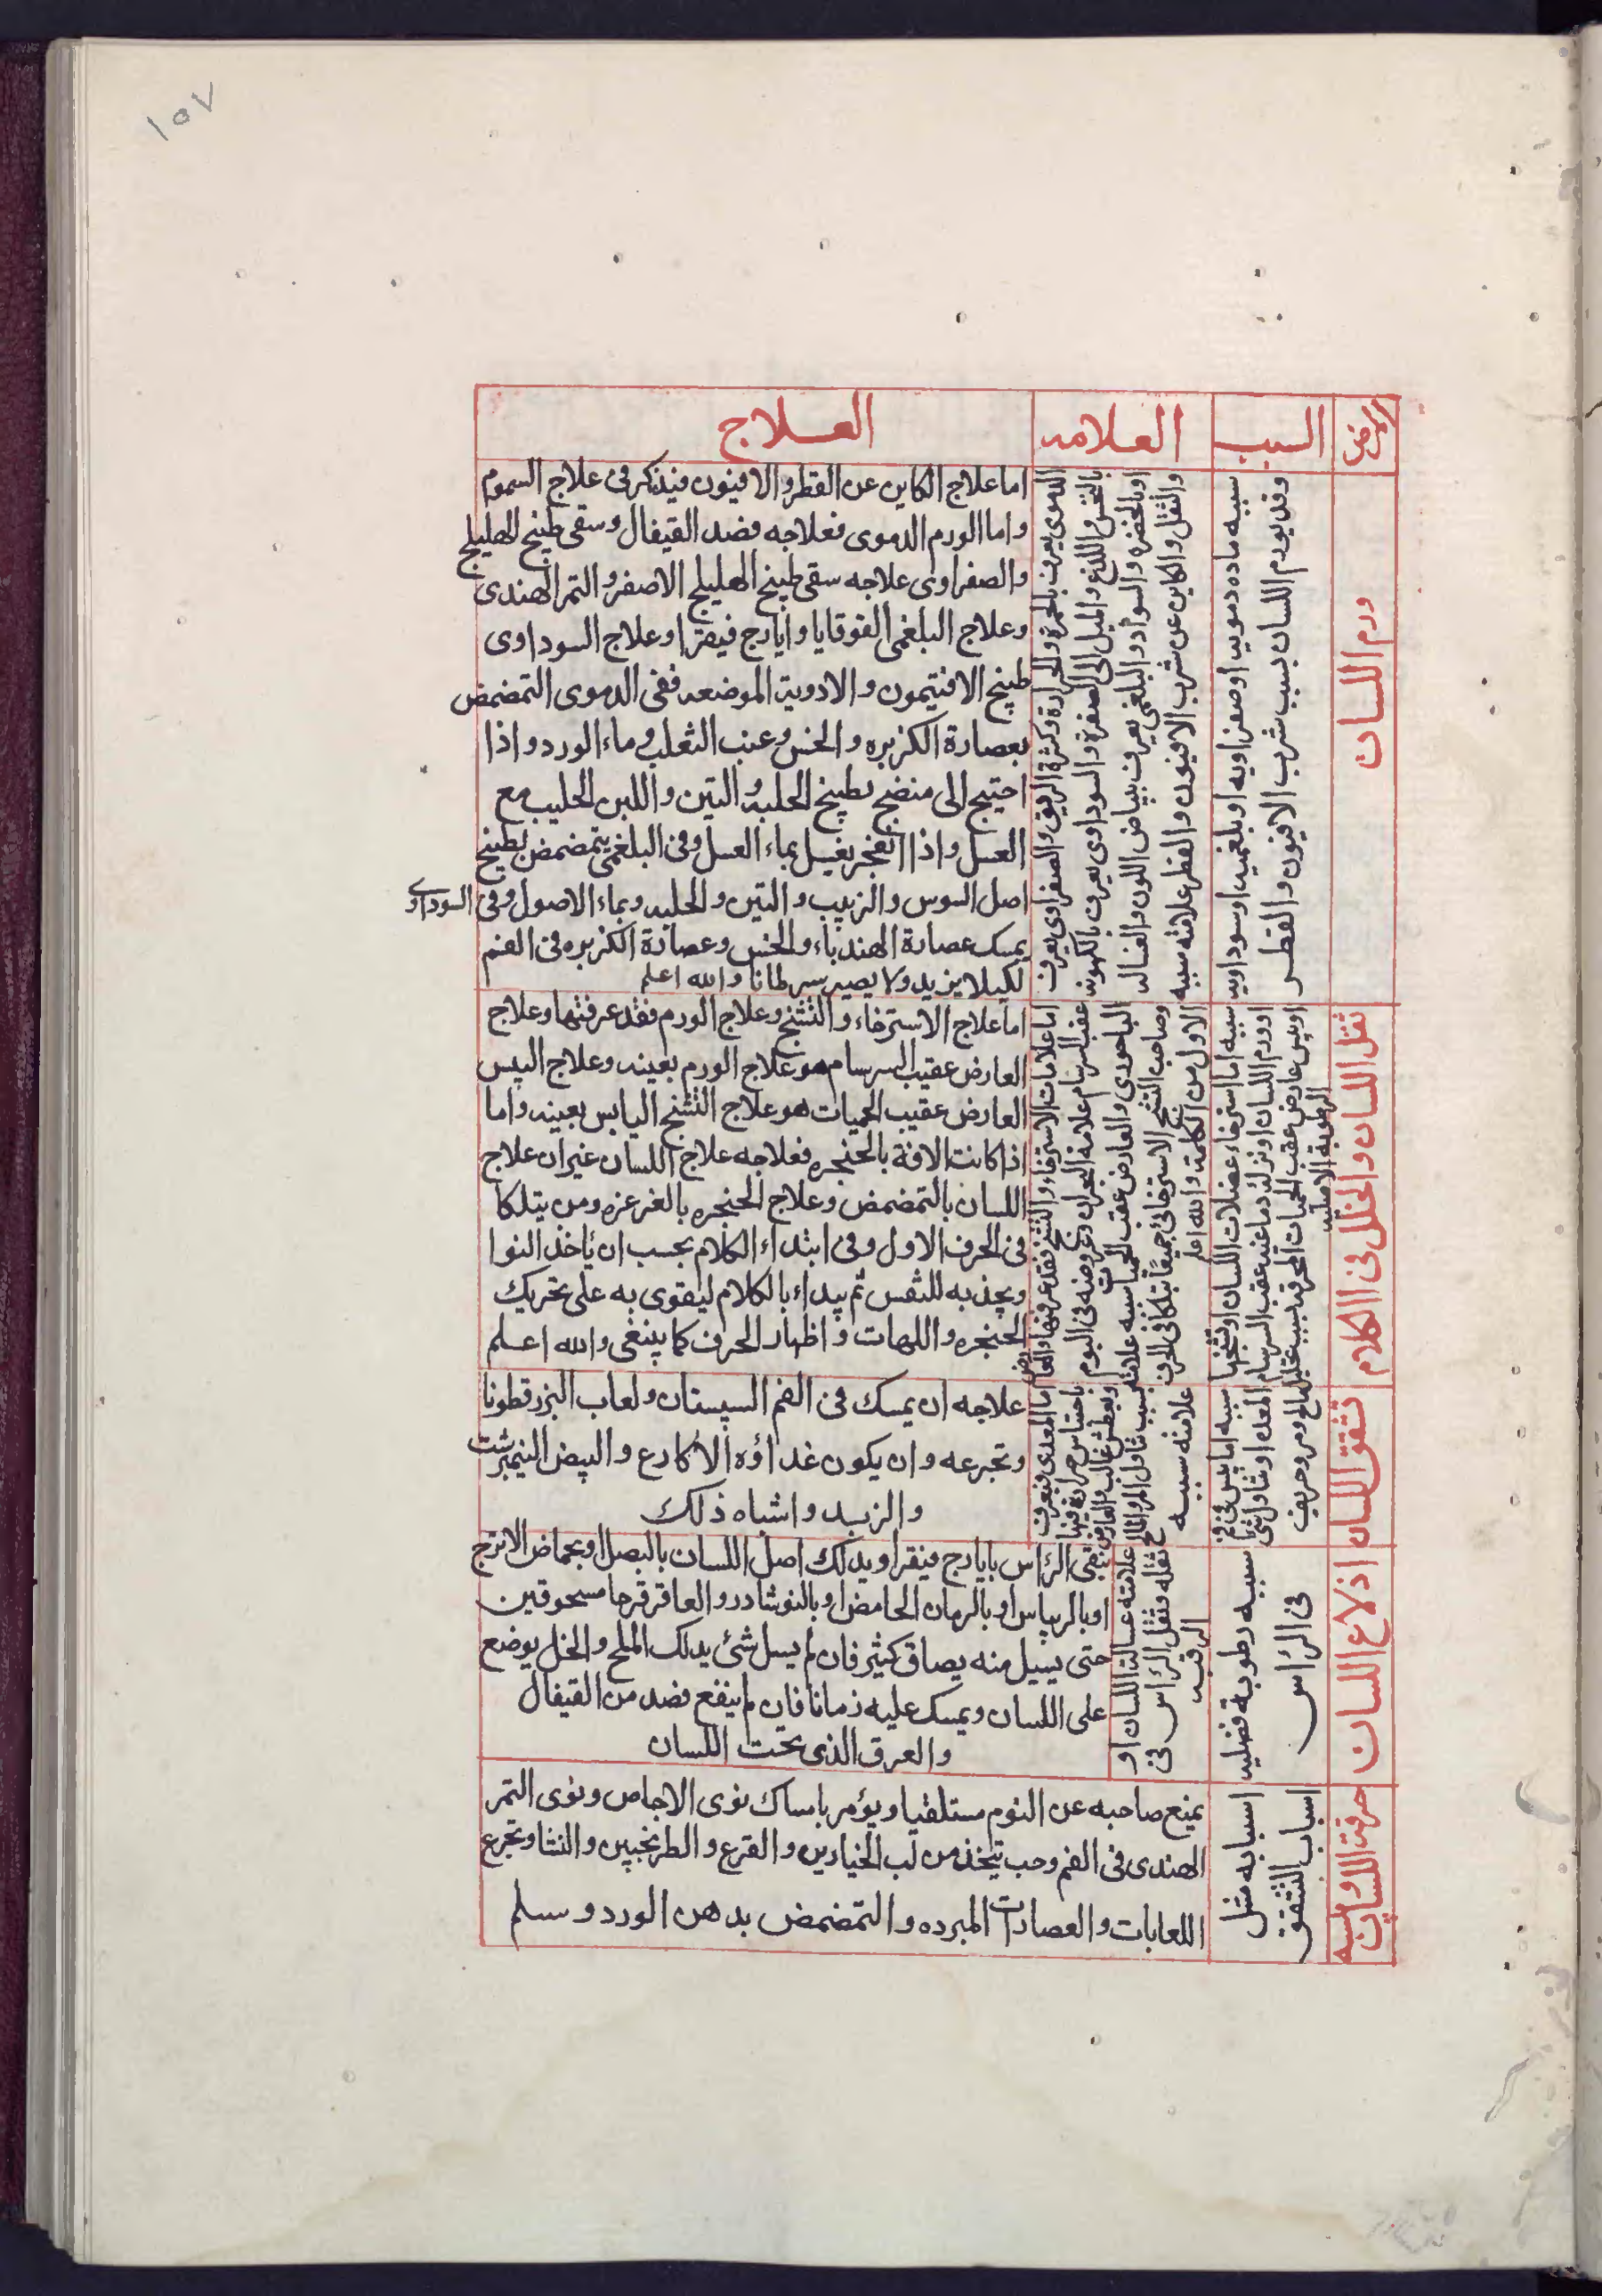 ١٥٧
المرض
السبب
العلامه
العلاج
ورم اللسان
سببه ماده دمويه او صفراويه او بلغميه او سوداويه
وقد يورم اللسان بسبب شرب الافيون والفطر
الدموى يعرف بالحمرة والحرارة وكثرة الريق والصفراوى يعرف
بالنخس واللذع والميل الى الصفرة والسوداوى يعرف بالكهوبه
او بالخضره والسواد والبلغمى يعرف ببياض اللون والغساله
والثقل والكاين عن شرب الافيون والفطر علامته سببه
اما علاج الكاين عن الفطر والافيون فيذكر فى علاج السموم
واما الورم الدموى فعلاجه فصد القيفال وسقى طبيخ الهليلج
والصفراوى علاجه سقى طبيخ الهليلج الاصفر والتمر الهندى
وعلاج البلغمى القوقايا وايارج فيقرا وعلاج السوداوى
طبيخ الافتيمون والادوية الموضعه ففى الدموى التمضمض
بعصارة الكزبره والخس وعنب الثعلب وماء الورد واذا
احتيج الى منضج بطبيخ الحلبه والتين واللبن الحليب مع
العسل واذا انفجر يغسل بماء العسل وفى البلغمى يتمضمض بطبيخ
اصل السوس والزبيب والتين والحلبه وبماء الاصول وفى السوداوى
يمسك عصارة الهندباء والخس وعصارة الكزبره فى الفم
لكيلا يزيد ولا يصير سرطانا والله اعلم
ثقل اللسان والخلل فى الكلام
سببه اما استرخاء عضلات اللسان او تشنجها
او ورم اللسان او نزلة دماغيه عقب السرسام
او يبس عارض عقب الحميات المحرقه بسبب تحليل
الرطوبة الاصليه
اما علامات الاسترخاء والتشنج فقد عرفتها والعارض
عقب السرسام علامة البحران وعروضه فى اليوم
الباحورى والعارض عقب الحميات سببه علامته
وصاحب التشنج الاسترخائى جميعا يتلكا فى الحرف
الاول من الكلمة والله اعلم
اما علاج الاسترخاء والتشنج وعلاج الورم فقد عرفتها وعلاج
العارض عقيب السرسام هو علاج الورم بعينه وعلاج اليبس
العارض عقيب الحميات هو علاج التشنج اليابس بعينه واما
اذا كانت الافة بالحنجره فعلاجه علاج اللسان غير ان علاج
اللسان بالتمضمض وعلاج الحنجره بالغرغره ومن يتلكا
فى الحرف الاول وفى ابتداء الكلام يجب ان يأخذ النوا
ويجذبه للنفس ثم يبداء بالكلام ليقوى به على تحريك
الحنجره واللهات واظهار الحرف كما ينبغى والله اعلم
تشقق اللسان
سببه اما يبس فى فم
المعده او تناول شئ
مالح ومر وحريف
اما المعدى فيعرف
باحتباس حرارة فيها
وبعطش غالب والعارض
بسبب تناول المر والمالح
علامته سببه
علاجه ان يمسك فى الفم السپستان ولعاب البزرقطونا
وتجرعه وان يكون غداؤه الاكارع والبيض النيمبرشت
والزبد واشباه ذلك
اذلاع اللسان
سببه رطوبة فضليه
فى الرأس
علامته غسالة اللسان او
ثقله وثقل الرأس فى
الرقبه
ينقى الرأس بايارج فيقرا ويدلك اصل اللسان بالبصل او بحماض الاترج
او بالريباس او بالرمان الحامض او بالنوشادر والعاقرقرحا مسحوقين
حتى يسيل منه بصاق كثير فان لم يسل شئ يدلك الملح والخل يوضع
على اللسان ويمسك عليه زمانا فان لم ينفع فصد من القيفال
والعرق الذى تحت اللسان
حرقت اللسان
اسبابه مثل
اسباب التشقق
يمنع صاحبه عن النوم مستلقيا ويؤمر بامساك نوى الاجاص ونوى التمر
الهندى فى الفم وحب يتخذ من لب الخيارين والقرع والطرنجبين والنشا وتجرع
اللعابات والعصارات المبرده والتمضمض بدهن الورد وسلم